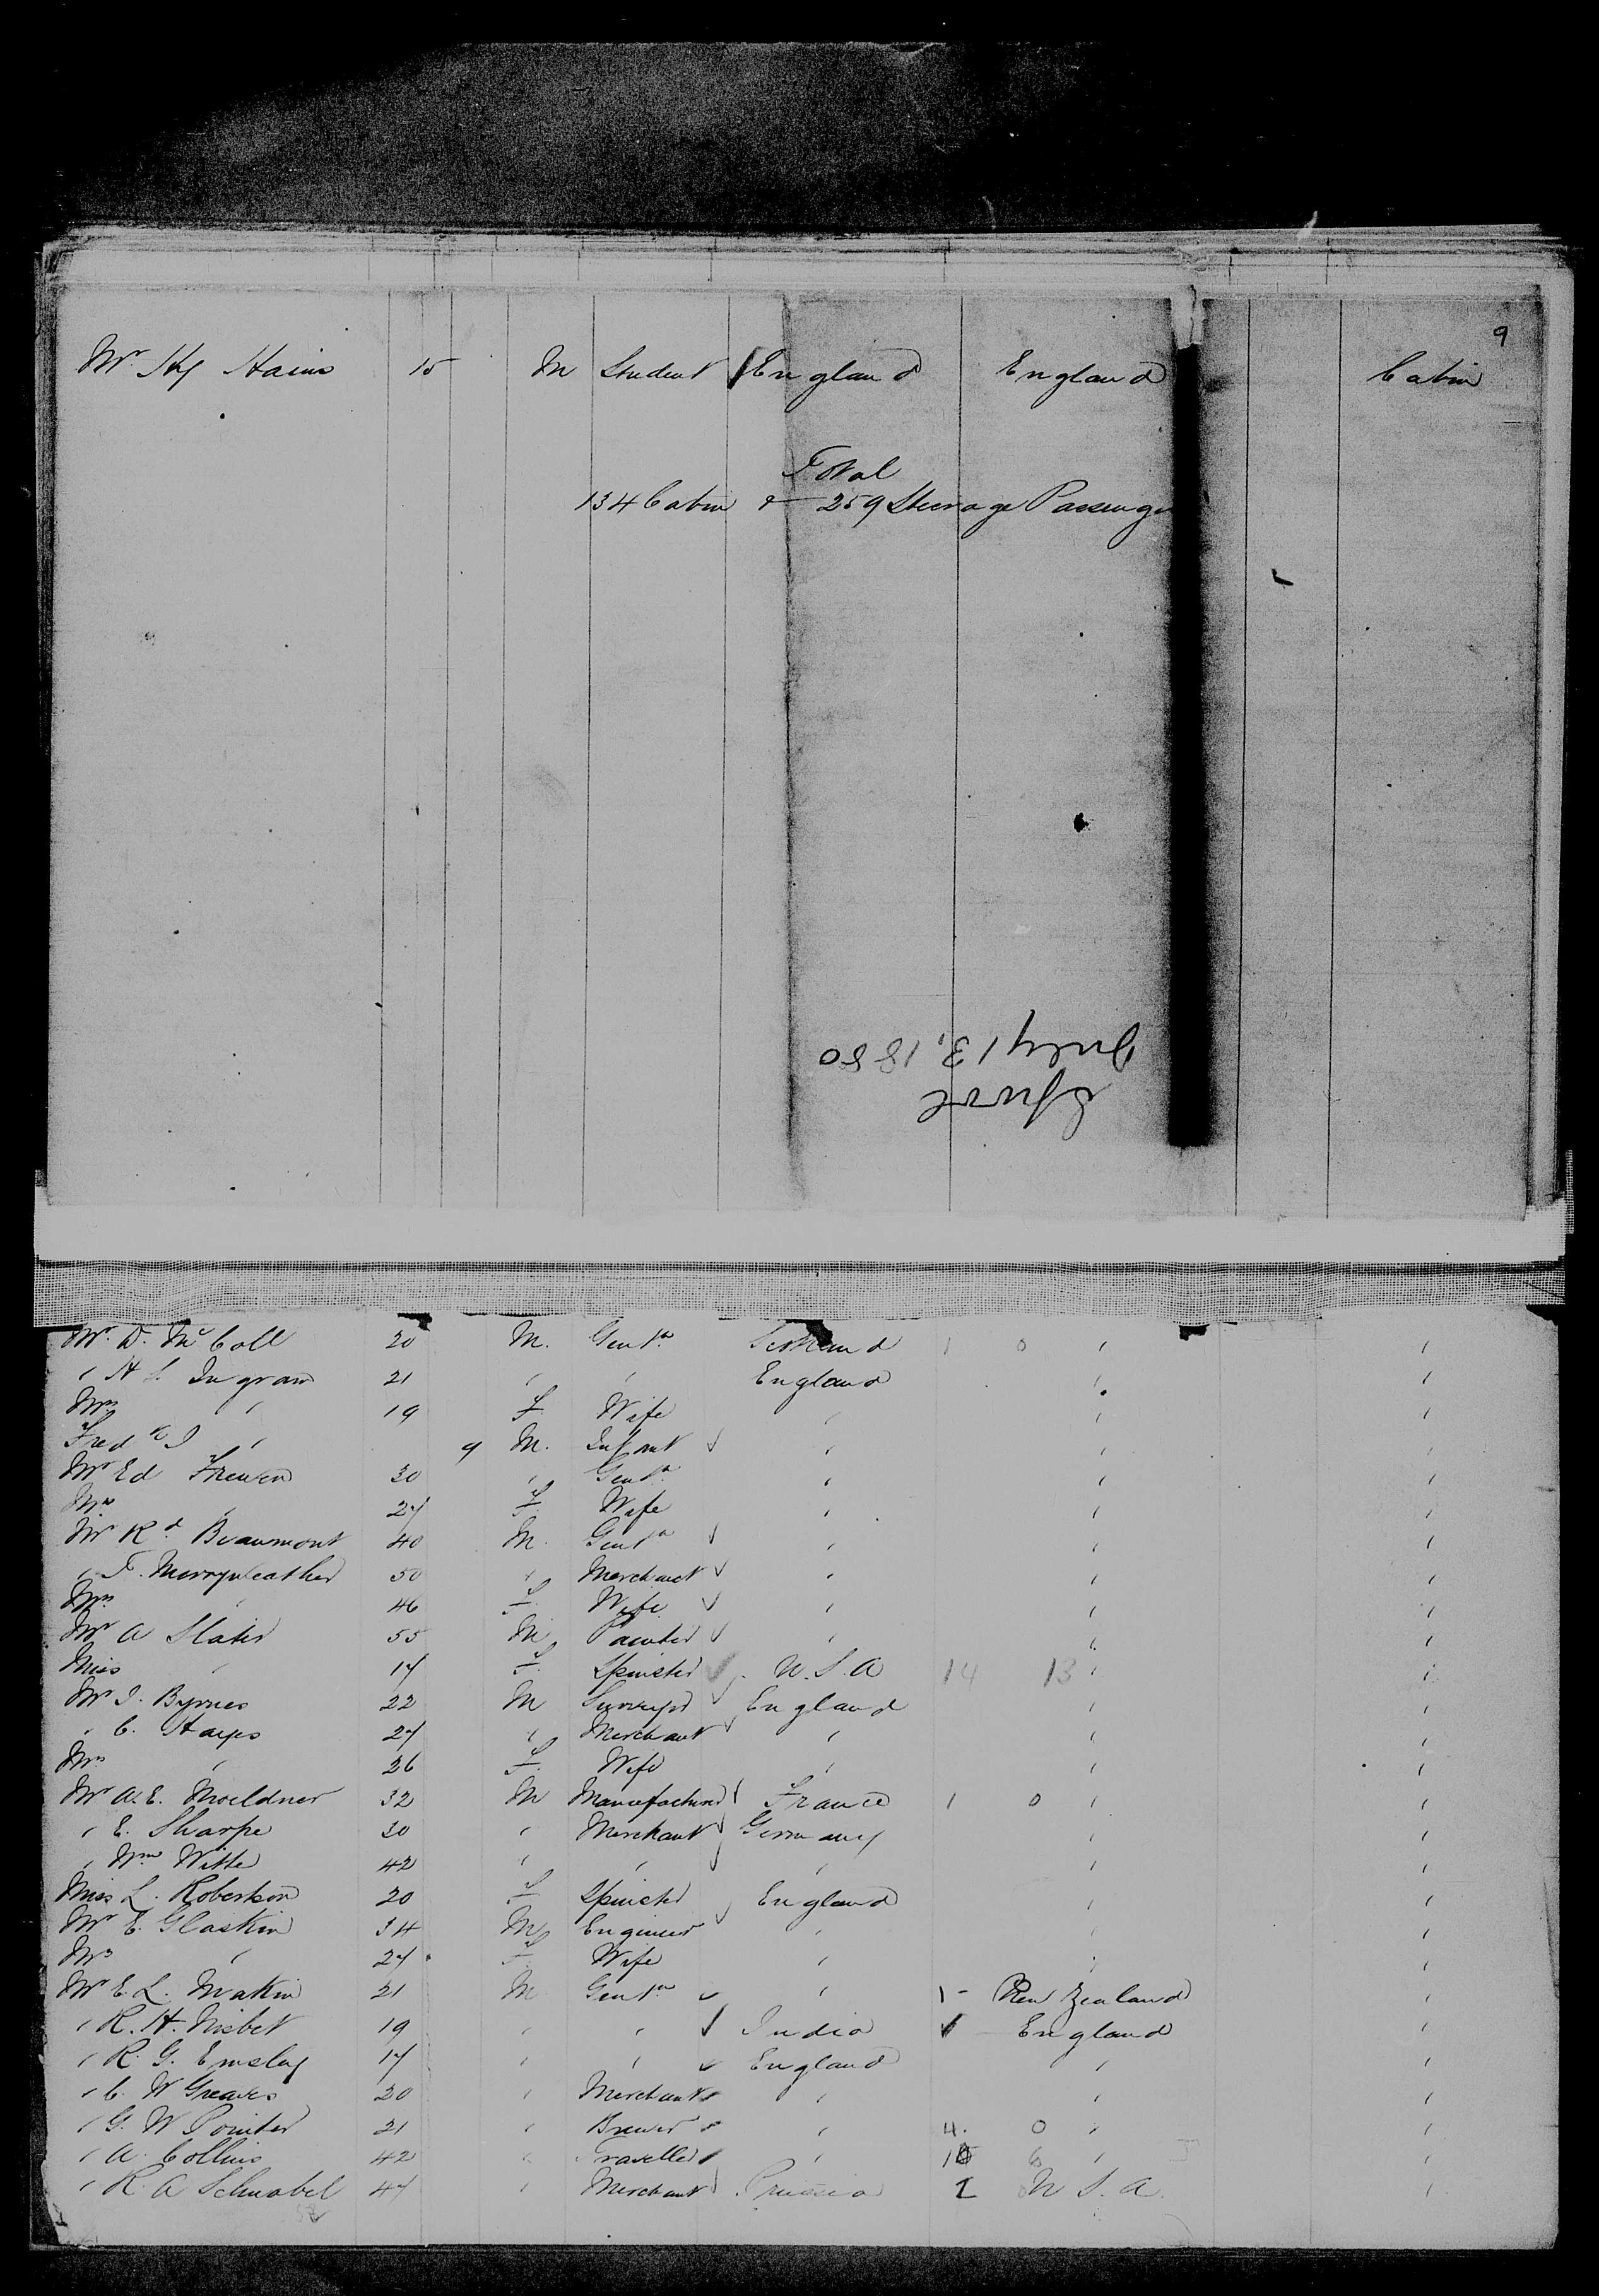 9
Mr Hy Hains 15 M Student England England Cabin
Total
134 Cabin & 259 Steerage Passenge
July 13, 1880
Mr. D. McColl 20 M. Gentn Scotland 1 0 "
" H L Ingram 21 " " England " "
Mrs " 19 F Wife " " "
Fredk J " 9 M. Infant " " "
Mr Ed Frewen 30 " Gentn " " "
Mrs " 27 F Wife " " "
Mr Rd Beaumont 40 M Gentn " " "
" F. Merryweather 50 " Merchant " " "
Mrs " 46 F Wife " " "
Mr A Slater 55 M Painter " " "
Miss " 17 F. Spinster U.S.A 14 13 " "
Mr J. Byrnes 22 M Surveyr England " "
" C. Hayes 27 " Merchant " " "
Mrs " 26 F. Wife " " "
Mr A.E. Moeldner 32 M Manufacturer France 1 0 " "
" E. Sharpe 30 " Merchant Germany " "
" Wm Witte 42 " " " " "
Miss L. Robertson 20 F Spinster England " "
Mr E. Glaskin 34 M Engineer " " "
Mrs " 27 F. Wife " " "
Mr E. L. Makin 21 M Gentn " 1 - New Zealand "
" R. H. Nisbet 19 " " India England "
" R. G. Emsley 17 " " England " "
" C. W Greaves 20 " Merchant " " "
" G. W Pointer 21 " Brewer " 4. 0 " "
" A. Collins 42 " Traveller " "
" R. A Schnabel 47 " Merchant Prussia U.S.A. "